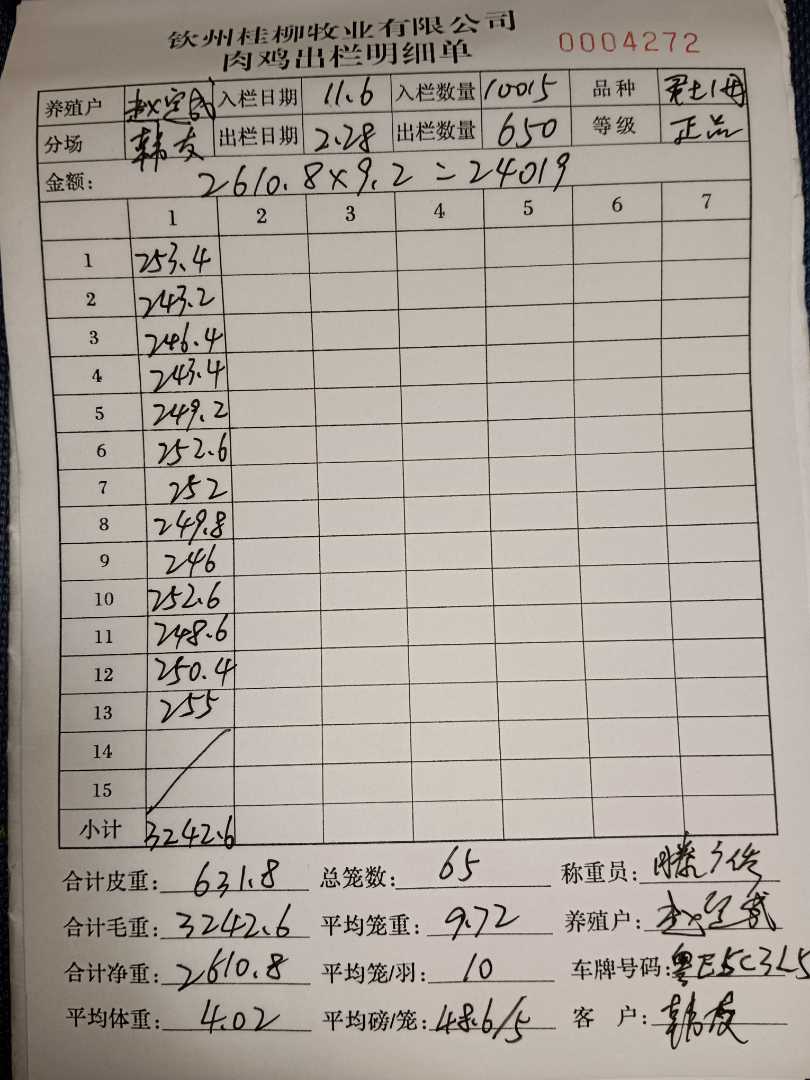 钦州桂柳牧业有限公司
肉鸡出栏明细单 0004272
养殖户 赵定武 入栏日期 11.6 入栏数量 10015 品种
分场 韩友 出栏日期 2.28 出栏数量 650 等级 正品
金额: 2610.8×9.2=24019
1 2 3 4 5 6 7
1 253.4
2 243.2
3 246.4
4 243.4
5 249.2
6 252.6
7 252
8 249.8
9 246
10 252.6
11 248.6
12 250.4
13 255
14
15
小计 3242.6
合计皮重: 631.8 总笼数: 65 称重员:
合计毛重: 3242.6 平均笼重: 9.72 养殖户: 赵定武
合计净重: 2610.8 平均笼/羽: 10 车牌号码: 粤E5C3L5
平均体重: 4.02 平均磅/笼: 48.6/5 客户: 韩友